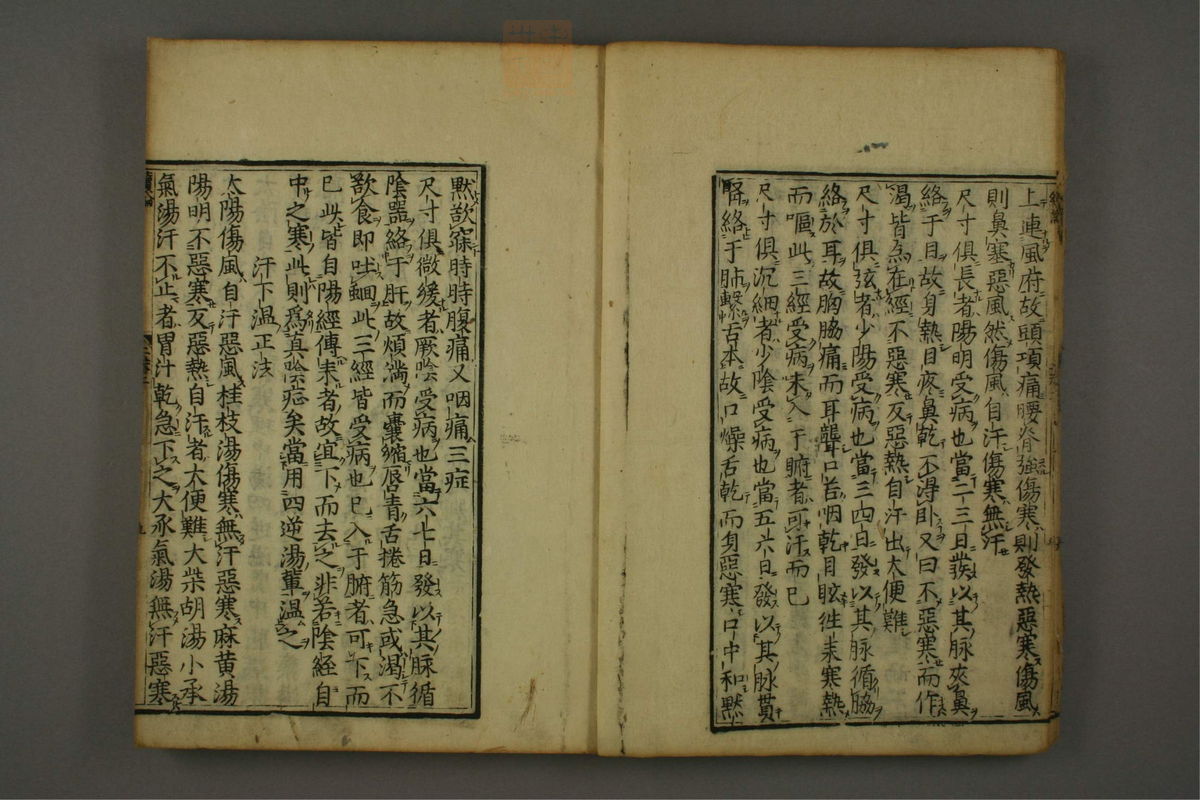 上連風府故頭項痛腰脊強傷寒則發熱惡寒傷風
則鼻塞惡風然傷風自汗傷寒無汗
尺寸俱長者陽明受病也當二三日發以其脉夾鼻
絡于目故身熱目疼鼻乾不得卧又曰不惡寒而作
渴皆為在經不惡寒反惡熱自汗出大便難
尺寸俱弦者少陽受病也當三四日發以其脉循脇
絡於耳故胸脇痛而耳聾口苦咽乾目眩徃来寒熱
而嘔此三經受病未入于腑者可汗而已
尺寸俱沉細者少陰受病也當五六日發以其脉貫
腎絡于肺繫舌本故口燥舌乾而身惡寒口中和默
默欲寐時時腹痛又咽痛三症
尺寸俱微緩者厥陰受病也當六七日發以其脉循
陰器絡于肝故煩滿而囊縮唇青舌捲筋急或渴不
欲食即吐蛔此三經皆受病也已入于腑者可下而
已此皆自陽經傳来者故宜下而去之非若陰經自
中之寒此則為真陰症矣當用四逆湯輩温之
汗下温正法
太陽傷風自汗惡風桂枝湯傷寒無汗惡寒麻黄湯
陽明不惡寒反惡熱自汗者大便難大柴胡湯小承
氣湯汗不止者胃汁乾急下之大承氣湯無汗惡寒